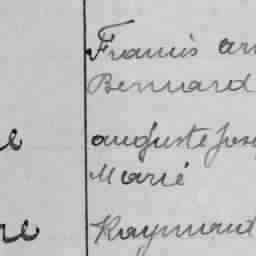 Francis an
Bernard
e auguste Jose
Marie
re Raymond